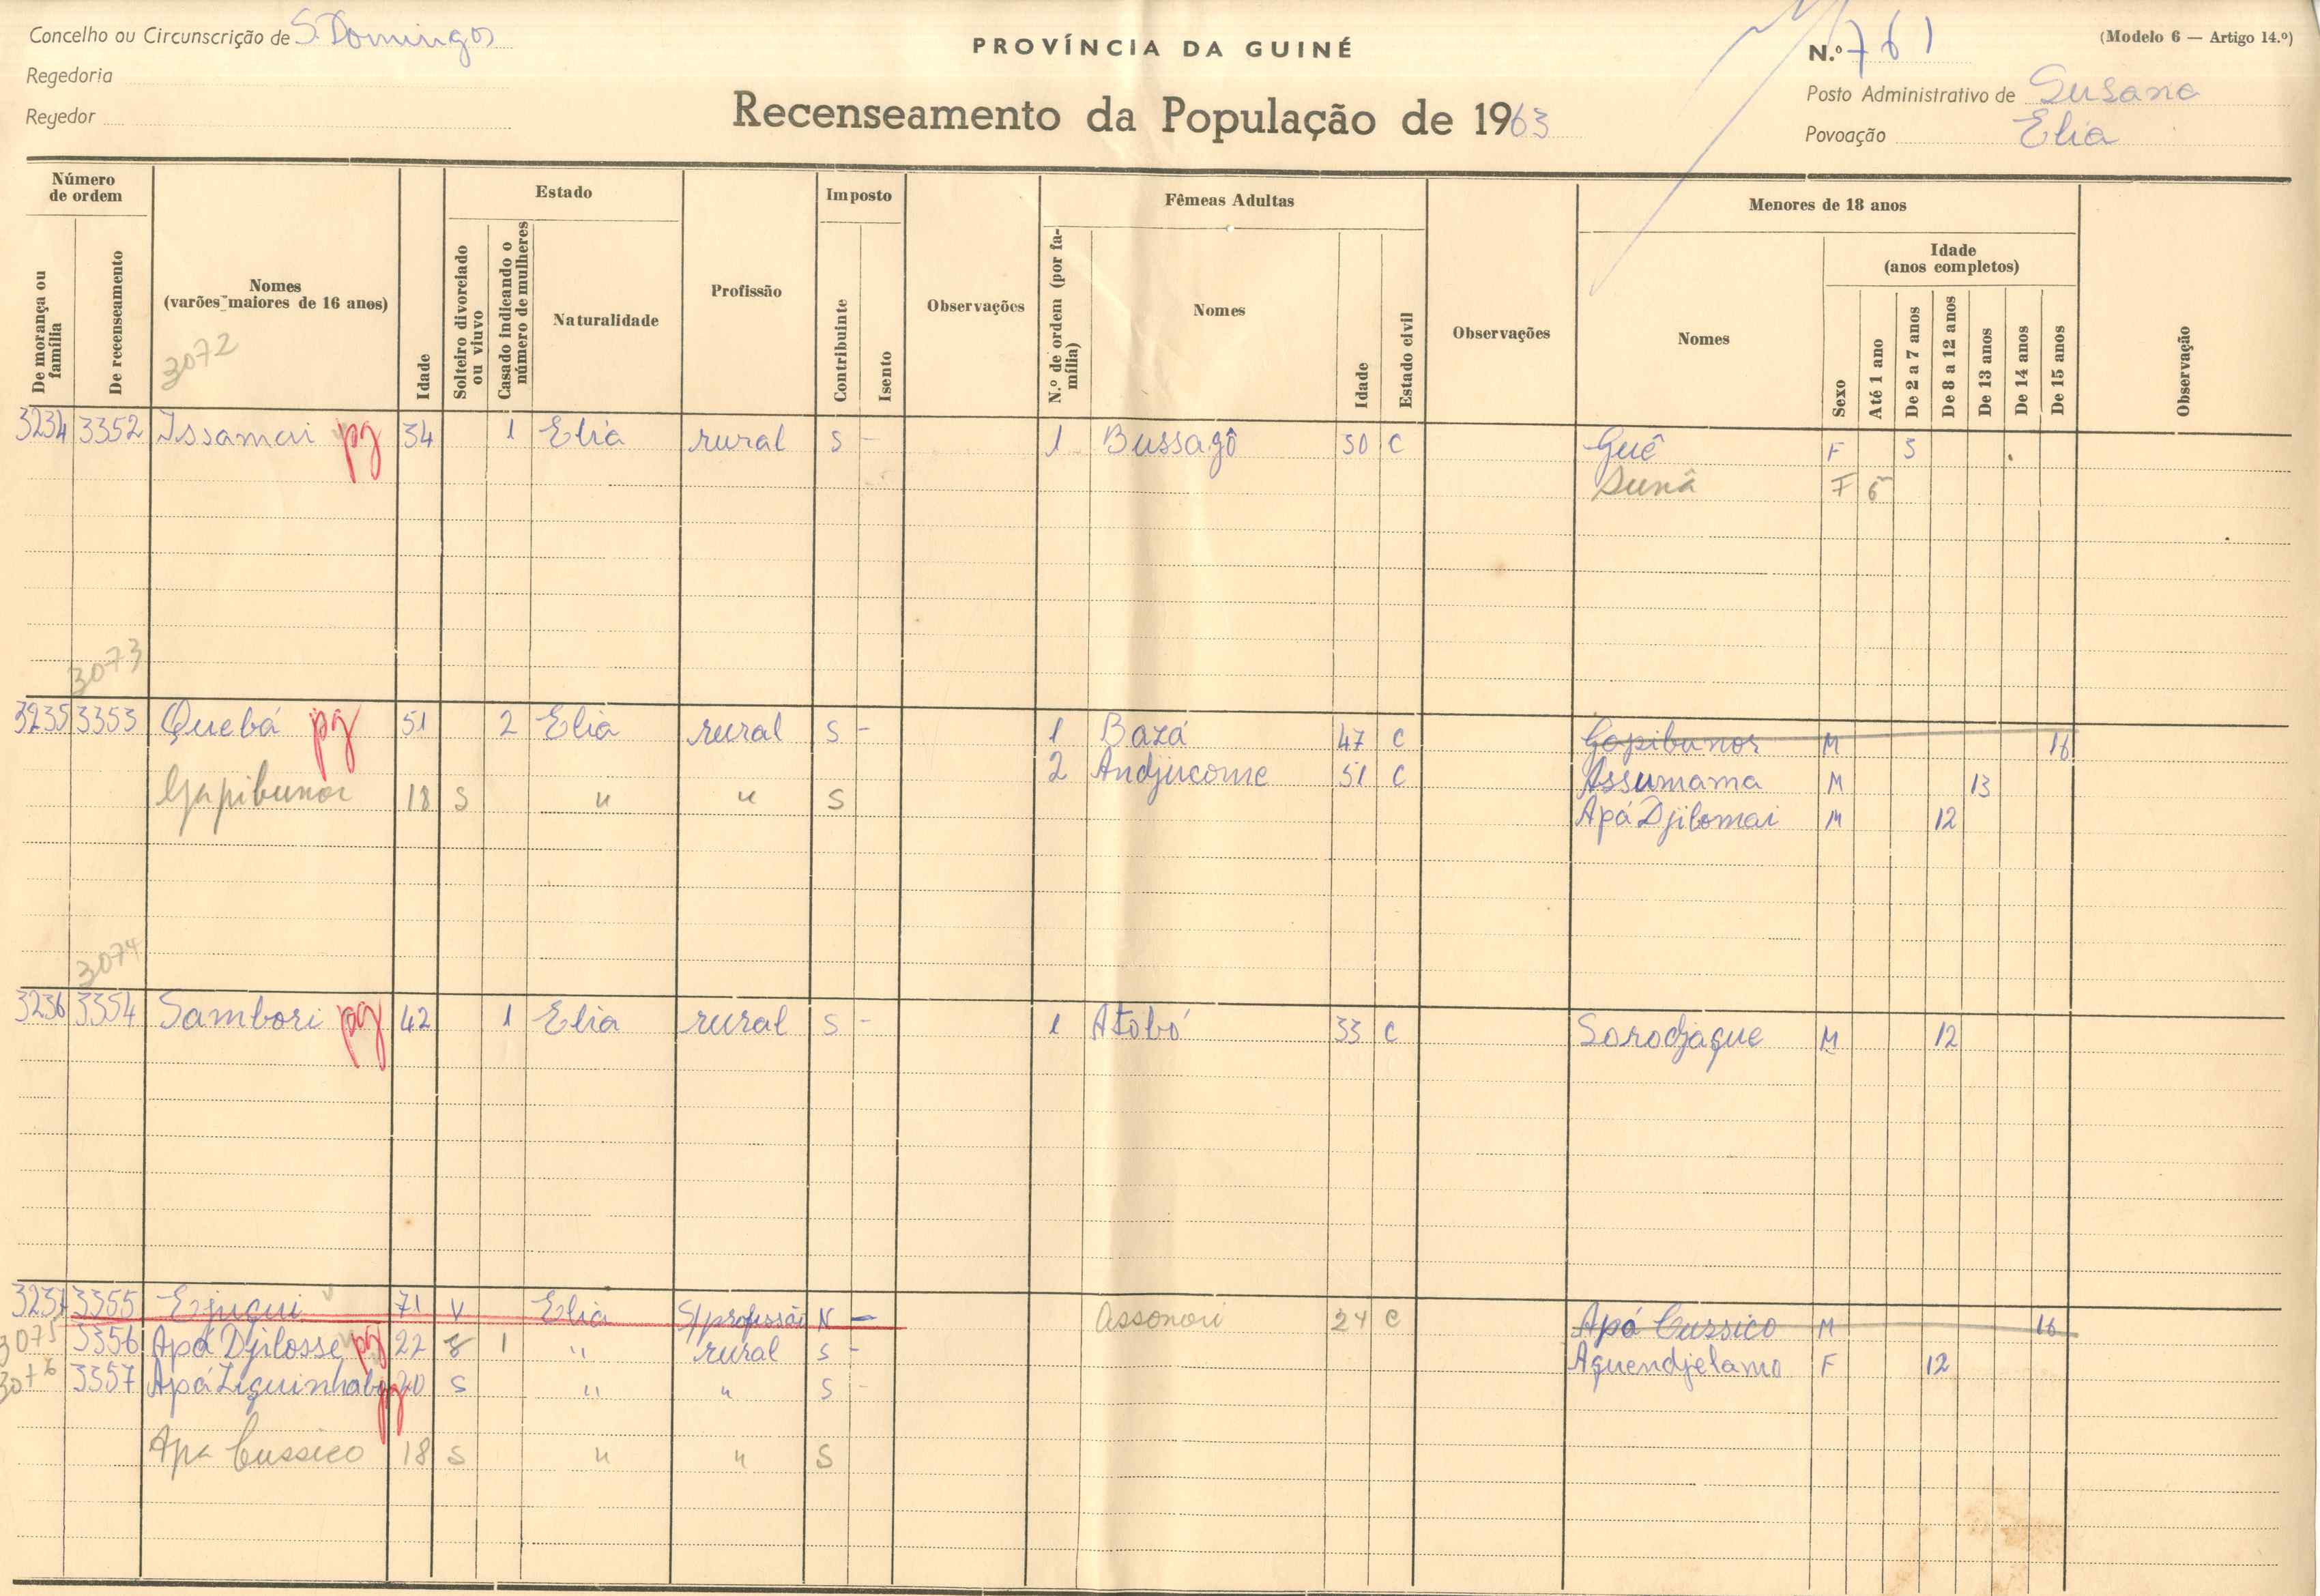 Concelho ou Circunscrição de S. Domingos
PROVÍNCIA DA GUINÉ
N.º 761
(Modelo 6 — Artigo 14.º)
Regedoria
Posto Administrativo de Susana
Regedor
Recenseamento da População de 1963
Povoação Elia
Número de ordem
De morança ou família
De recenseamento
Nomes
(varões maiores de 16 anos)
3072
Idade
Estado
Solteiro divorciado ou viuvo
Casado indicando o número de mulheres
Naturalidade
Profissão
Imposto
Contribuinte
Isento
Observações
Fêmeas Adultas
N.º de ordem (por família)
Nomes
Idade
Estado civil
Observações
Menores de 18 anos
Nomes
Sexo
Idade
(anos completos)
Até 1 ano
De 2 a 7 anos
De 8 a 12 anos
De 13 anos
De 14 anos
De 15 anos
Observação
3234 3352 Issamai pg 34 1 Elia rural S - 1 Bussagô 30 C Guê F 5
Sunâ F 6
3073
3235 3353 Quebá pg 51 2 Elia rural S - 1 Bazá 47 C Gapibunor M 16
2 Andjucome 51 C Assumama M 13
Gapibunor 18 S " " S
Apá Djilomai M 12
3074
3236 3354 Sambori pg 42 1 Elia rural S - 1 Atobó 33 C Sorodjaque M 12
3237 3355 Ejuqui 71 V Elia S/profissão N - Assonori 24 C Apá Cussico M 16
3075 3356 Apá Djilosse pg 22 1 " rural S - Aquendjelamo F 12
3076 3357 Apá Liquinhab pg 20 S " " S -
Apa Cussico 18 S " " S